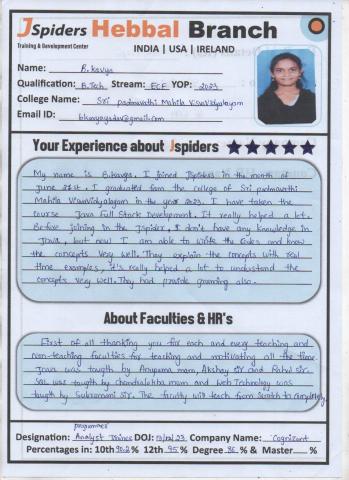 JSpiders Hebbal Branch
Training & Development Center
INDIA | USA | IRELAND
Name: B.kavya
Qualification: B.Tech Stream: ECE YOP: 2023
College Name: Sri padmavathi Mahila Visvavidyalayam
Email ID:
Your Experience about Jspiders
My name is B.kavya. I joined Jspiders in the month of
June 21st. I graduated from the college of Sri padmavathi
Mahila Visvavidyalayam in the year 2023. I have taken the
course Java Full Stack Development. It really helped a lot.
Before joining in the Jspider, I don't have any knowledge in
Java, but now I am able to write the codes and know
the concepts very well. They explain the concepts with real
time examples, it's really helped a lot to understand the
concepts very well. They had provide grooming also.
About Faculties & HR's
First of all thanking you for each and every teaching and
non-teaching faculties for teaching and motivating all the time.
Java was taugth by Anupama mam, Akshay sir and Rahul sir.
Sql was taugth by Chandralekha mam and Web Technology was
taugth by Subramani sir. The faculty will teach from Scratch to completely.
programmer
Designation: Analyst Trainee DOJ: /12/23 Company Name: Cognizant
Percentages in: 10th 90.2 % 12th 95 % Degree 86 % & Master %